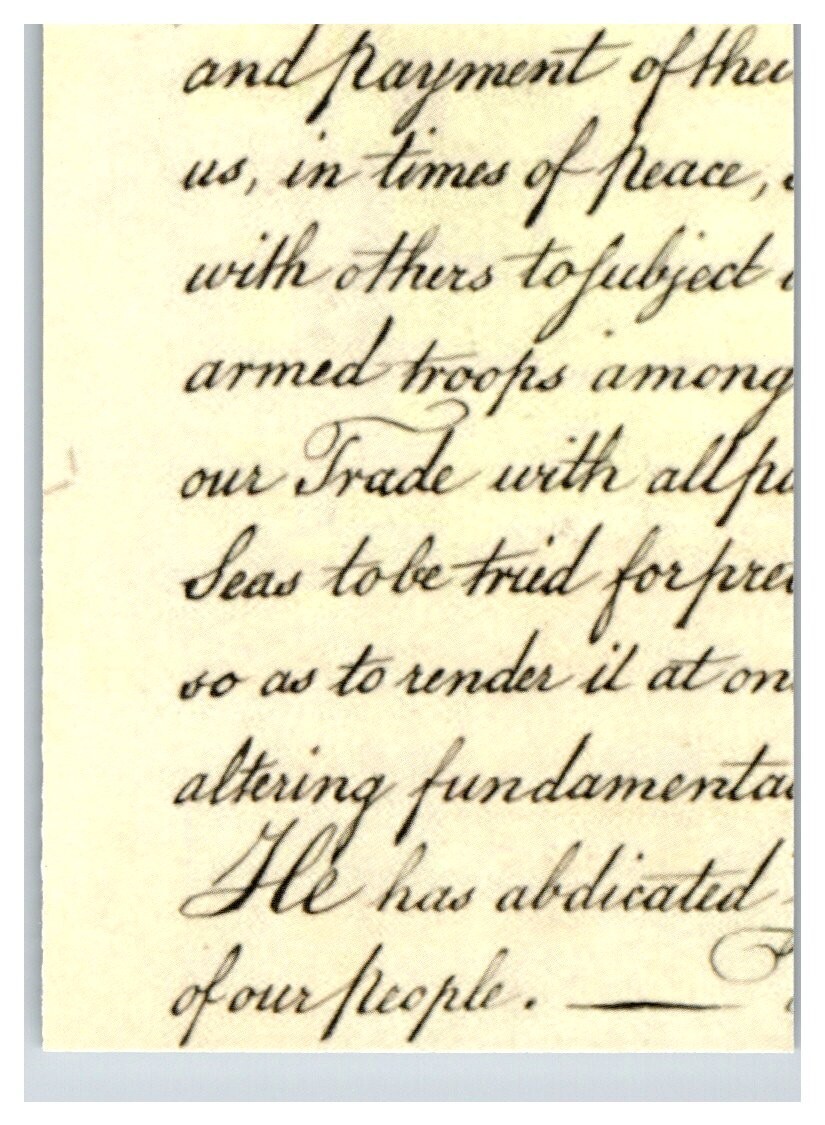 and payment of thei
us, in times of peace,
with others to subject
armed troops among
our Trade with all pa
Seas to be tried for pre
so as to render it at on
altering fundamenta
He has abdicated
of our people. —